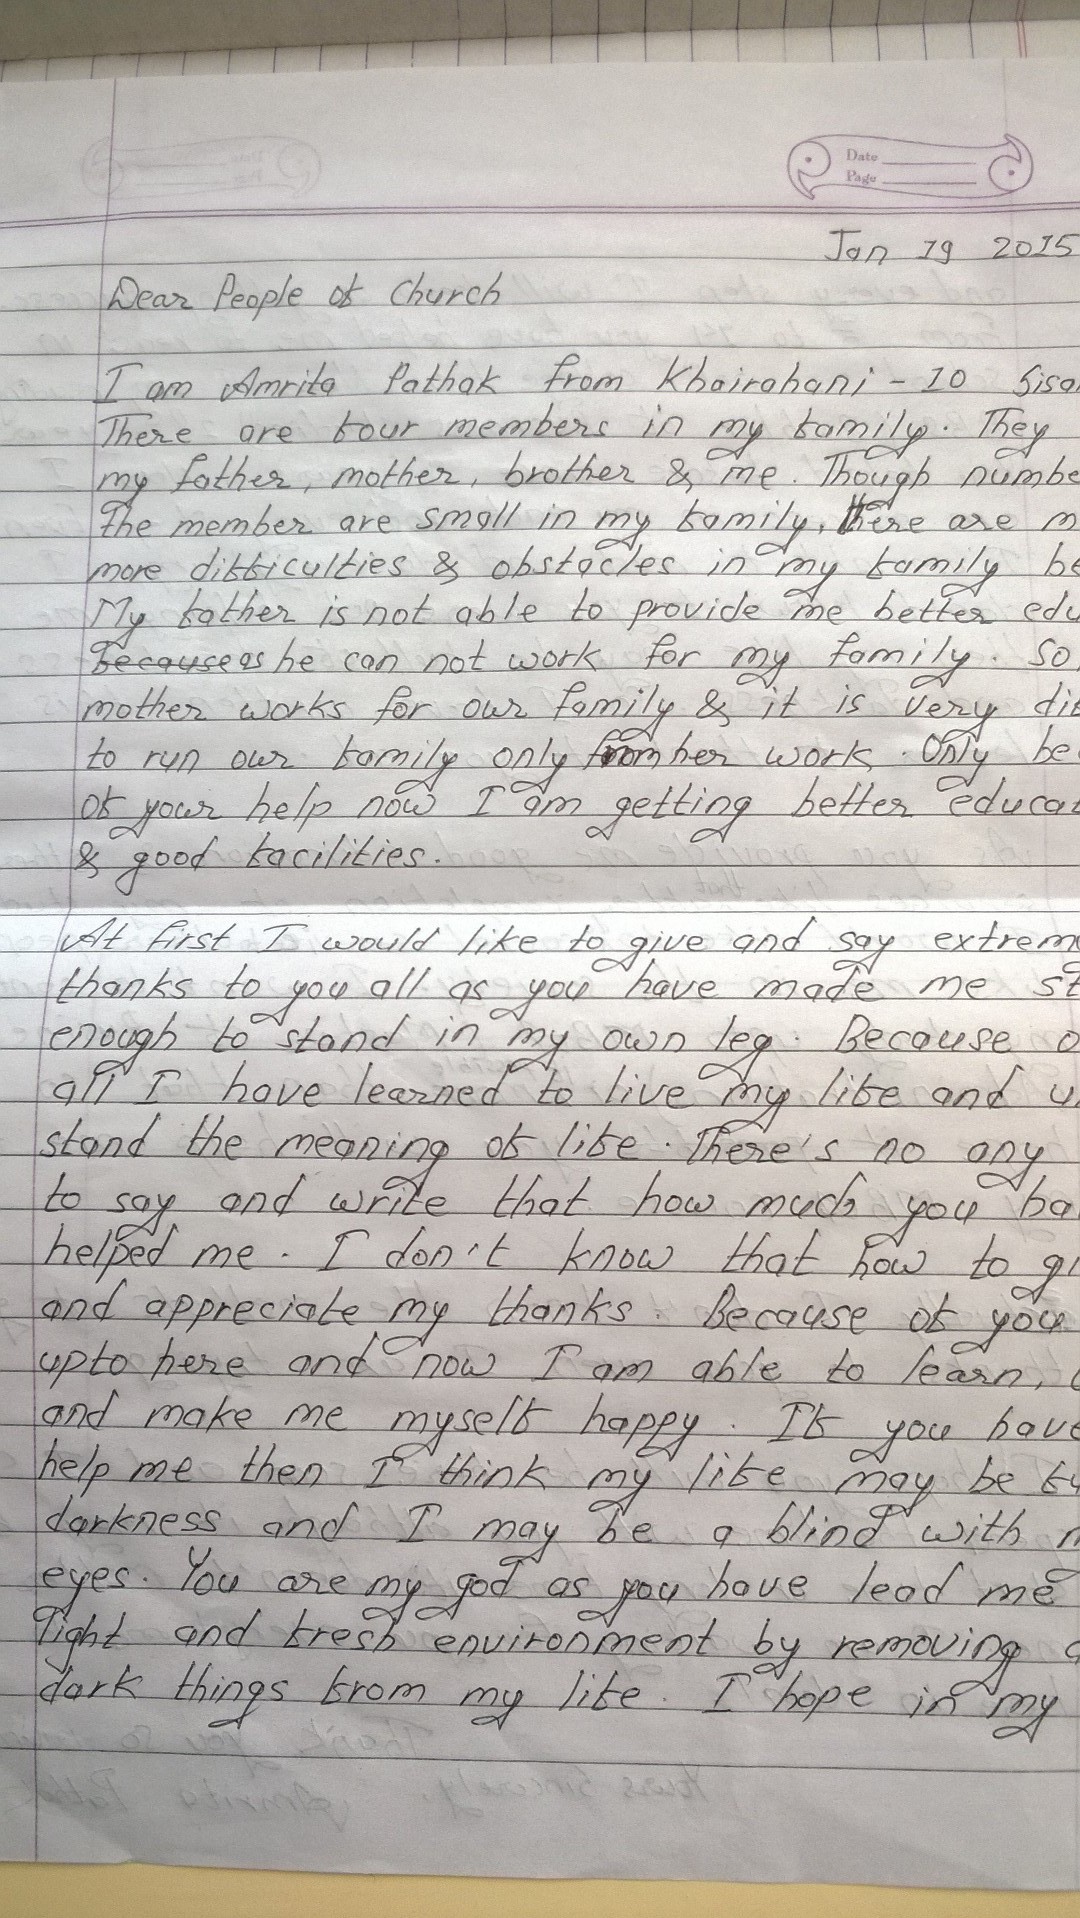 Date
Page
Jan 19 2015
Dear People of Church
I am Amrita Pathak from Khairahani - 10
There are four members in my family. They
my father, mother, brother & me. Though numbe
the member are small in my family, there are m
more difficulties & obstacles in my family be
My father is not able to provide me better edu
Because as he can not work for my family. So,
mother works for our family & it is very dif
to run our family only from her work. Only be
of your help now I am getting better educat
& good facilities.
At first I would like to give and say extrem
thanks to you all as you have made me st
enough to stand in my own leg. Because o
all I have learned to live my life and u
stand the meaning of life. There's no any
to say and write that how much you ha
helped me. I don't know that how to gi
and appreciate my thanks. Because of you
upto here and now I am able to learn,
and make me myself happy. If you have
help me then I think my life may be fu
darkness and I may be a blind with
eyes. You are my god as you have lead me
light and fresh environment by removing a
dark things from my life. I hope in my